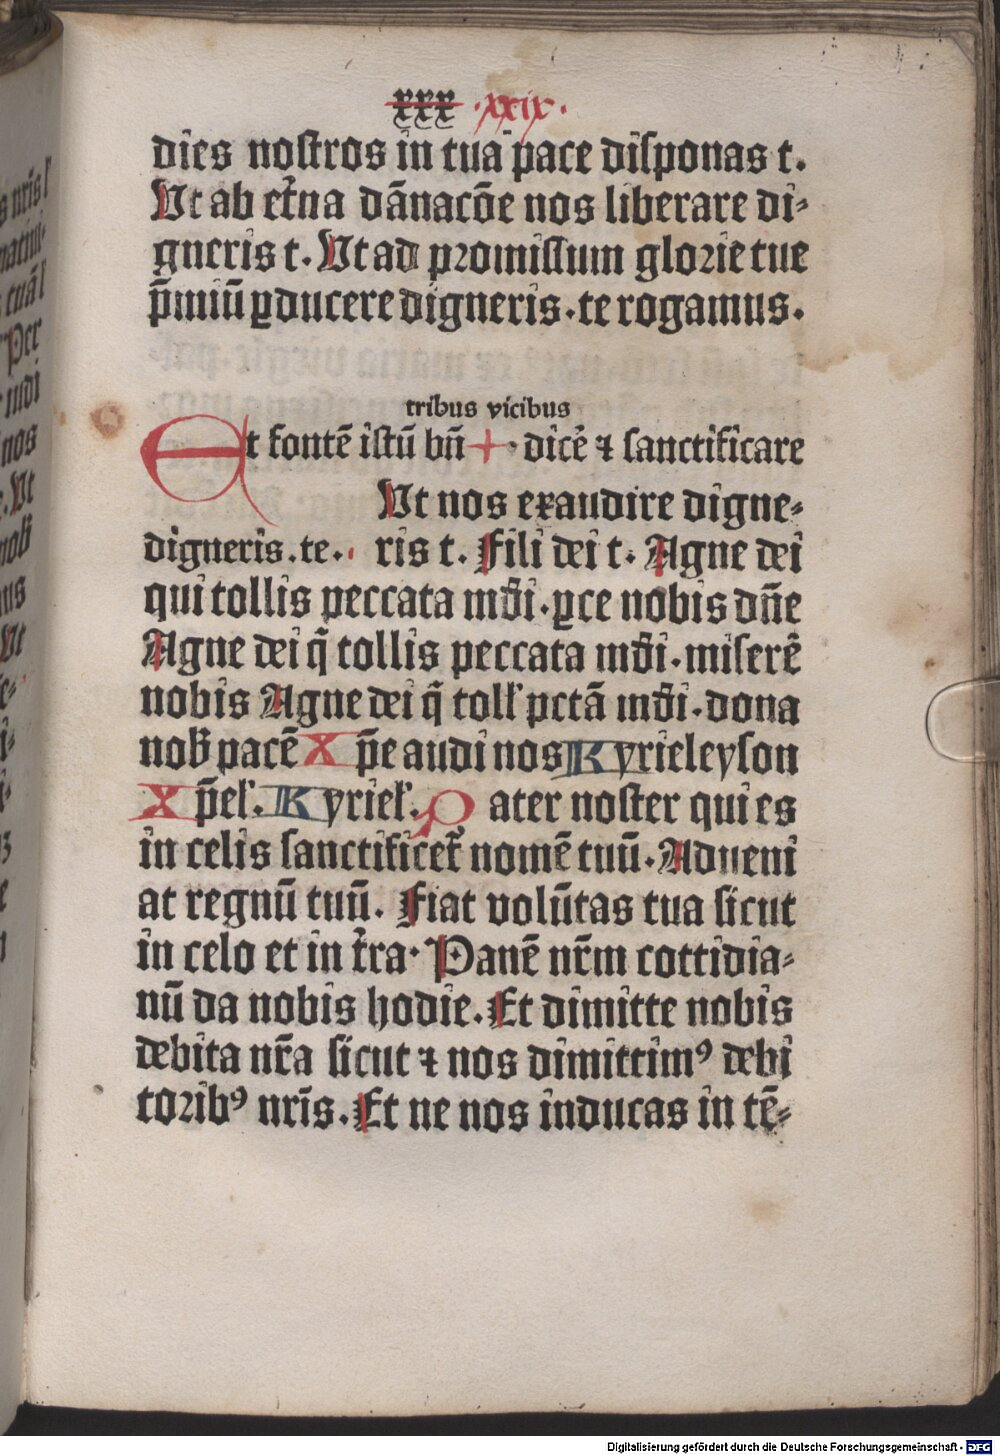 xxx ·xxix·
dies nostros in tua pace disponas t.
Vt ab et̄na dānacōe nos liberare di-
gneris t. Vt ad promissum glorie tue
p̄miū ꝑducere digneris. te rogamus.
tribus vicibus
Et fontē istū bn̄ + dicē ⁊ sanctificare
Vt nos exaudire digne-
digneris. te. ris t. Fili dei t. Agne dei
qui tollis peccata mūdi. ꝑce nobis dn̄e
Agne dei q̄ tollis peccata mūdi. miserē
nobis Agne dei q̄ toll' pctā mūdi. dona
nob̄ pacē Xp̄e audi nos Kyrieleyson
Xp̄el'. Kyriel'. Pater noster qui es
in celis sanctificet̄ nomē tuū. Adueni
at regnū tuū. Fiat volūtas tua sicut
in celo et in t̄ra. Panē nr̄m cottidia-
nū da nobis hodie. Et dimitte nobis
debita nr̄a sicut ⁊ nos dimittimꝰ debi
toribꝰ nrīs. Et ne nos inducas in tē-
Digitalisierung gefördert durch die Deutsche Forschungsgemeinschaft - DFG